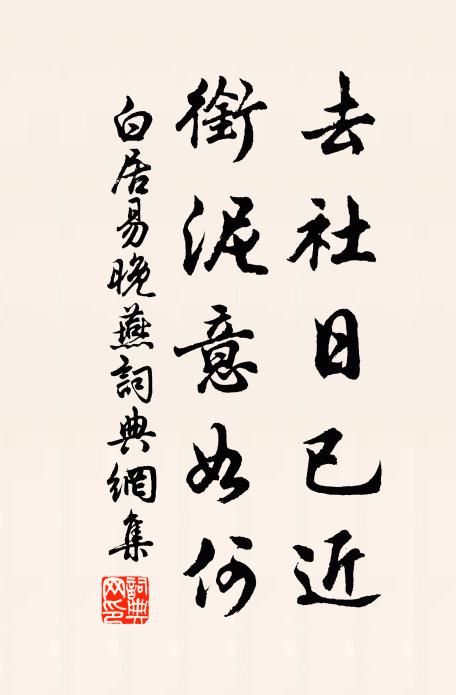 去社日已近
銜泥意如何
白居易晚燕詞典網集
詞典網印